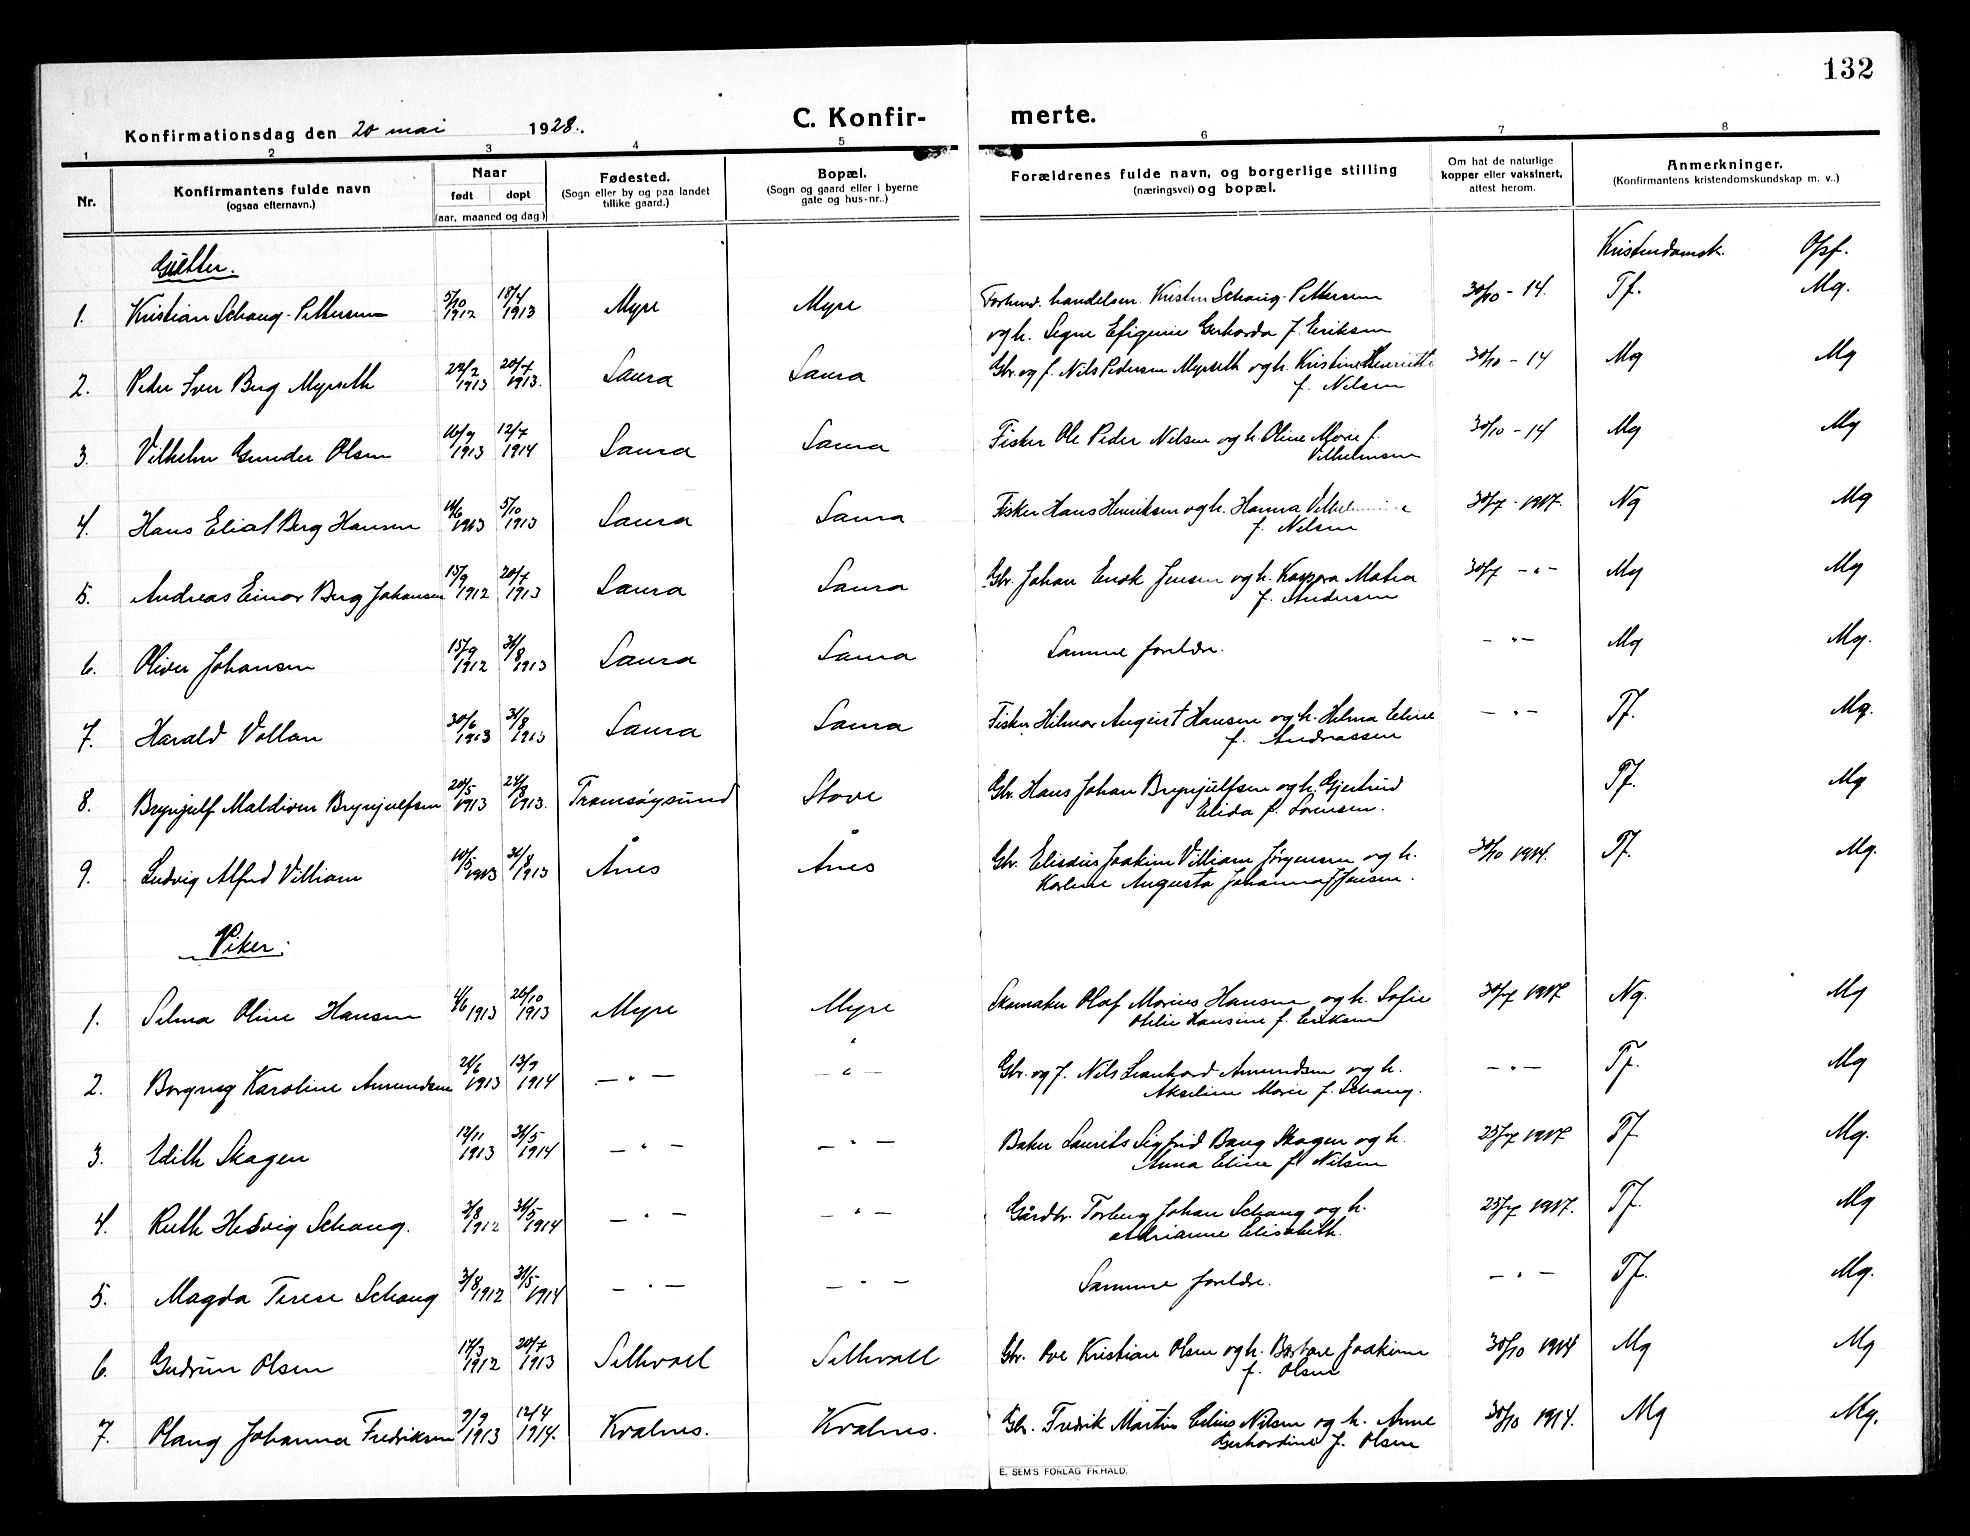 132
Konfirmationsdag den 20 mai 1928.
C. Konfir- merte.
1 2 3 4 5 6 7 8
Nr.
Konfirmantens fulde navn
(ogsaa efternavn.)
Naar
født døpt
(aar, maaned og dag)
Fødested.
(Sogn eller by og paa landet
tillike gaard.)
Bopæl.
(Sogn og gaard eller i byerne
gate og hus-nr..)
Forældrenes fulde navn, og borgerlige stilling
(næringsvei) og bopæl.
Om hat de naturlige
kopper eller vaksinert,
attest herom.
Anmerkninger.
(Konfirmantens kristendomskundskap m. v..)
Gutter. Kristendomsk. Opf.
1. Kristian Schaug-Pettersen 5/10 1912 18/4 1913 Myre Myre Forhenv. handelsm. Kristen Schaug-Pettersen 30/10-14. Tf. Mg.
og h. Signe Efigenie Gerharda f. Eriksen
2. Peder Iver Berg Myrseth 22/2 1913 20/7 1913. Saura Saura Gbr. og f. Nils Pedersen Myrseth og h. Kristine Henriette 30/10-14 Mg Mg
f. Nilsen
3. Vilhelm Gunder Olsen 16/9 1913 12/7 1914 Saura Saura Fisker Ole Peder Nilsen og h. Oline Marie f. 30/10-14 Mg Mg
Vilhelmsen
4. Hans Elial Berg Hansen 14/6 1913 5/10 1913 Saura Saura Fisker Hans Henriksen og h. Hanna Vilhelmine 30/7-1917. Ng Mg
f. Nilsen
5. Andreas Einar Berg Johansen 15/9 1912 20/7 1913 Saura Saura Gbr. Johan Enok Jensen og h. Kaspara Matea 30/7 -"- Mg Mg
f. Andersen
6. Oliver Johansen 15/9 1912 31/8 1913 Saura Saura Samme forældre. -"- Mg Mg.
7. Harald Vollan 30/6 1913 31/8 1913 Saura Saura Fisker Hilmar August Hansen og h. Helma Eline -"- Tf. Mg.
f. Andreassen
8. Brynjulf Maldiven Brynjulfsen 20/5 1913 24/8 1913. Tromsøysund Stave Gbr. Hans Johan Brynjulfsen og h. Gjertrud Tf. Mg
Elida f. Sørensen.
9. Ludvig Alfred Villiam 10/5 1913 31/8 1913 Ånes Ånes Gbr. Elisæus Joakim Villiam Jørgensen og h. 30/10 1914. Tf. Mg.
Karline Augusta Johanna f Jensen.
Piker:
1. Selma Oline Hansen 4/6 1913 26/10 1913 Myre Myre Skomaker Olaf Marius Hansen og h. Sofie 30/7 1917 Ng. Mg
Otelie Hansine f. Eriksen
2. Borgny Karoline Amundsen 21/6 1913 13/9 1914 -"- -"- Gbr. og f. Nils Leonhard Amundsen og h. -"- Tf. Mg
Akseline Marie f. Schaug.
3. Edith Skagen 12/11 1913 31/5 1914 -"- -"- Baker Laurits Sigfrid Bang Skagen og h. 23/7 1917 Tf. Mg.
Anna Eline f. Nilsen
4. Ruth Hedvig Schaug. 3/8 1912 31/5 1914 -"- -"- Gårdbr. Torberg Johan Schaug og h. 23/7 1917. Tf. Mg
Adrianne Elisabeth.
5. Magda Terese Schaug 3/8 1912 31/5 1914 -"- -"- Samme forældre. -"- Tf. Mg.
6. Gudrun Olsen 17/3 1912 20/7 1913 Selhvall Selhvall Gbr. Ove Kristian Olsen og h. Barbare Joakime 30/10 1914 Mg Mg
f. Olsen
7. Olaug Johanna Fredriksen 9/9 1913 12/4 1914. Kvalnes. Kvalnes. Gbr. Fredrik Martin Edius Nilsen og h. Anne 30/10 1914. Mg Mg.
Gerhardine f. Olsen
E. SEM'S FORLAG FR.HALD.